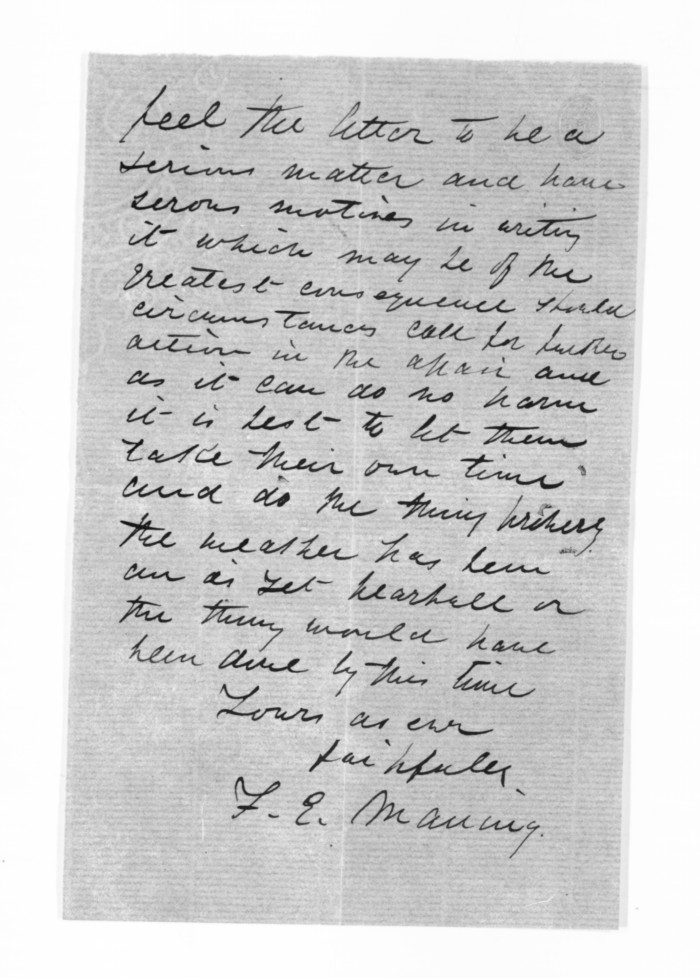 feel the letter to be a
serious matter and have
serous motives in writing
it which may be of the
greatest consequence should
circumstances call for further
action in the affair and
as it can do no harm
it is best to let them
take their own time
and do the thing properly
the weather has been
and is yet fearfull or
the thing would have
been done by this time
Yours as ever
faithfully
F. E. Maning.